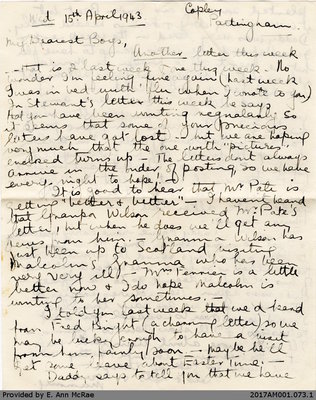 Wed 15th April 1943
Copley
Pattingham.
My Dearest Boys,
Another letter this week
– that is 2 last week one this week. No
wonder I'm feeling fine again (last week
I was in bed with 'flu when I wrote to you)
In Stewart's letter this week he says
that you have been writing regularly so
it seems that some of your precious
letters have got lost – but we are hoping
very much that the one with "pictures"
enclosed turns up – The letters don't always
arrive in the order of posting, so we have
every right to hope.
It is good to hear that Mr Pate is
getting "better & better" – I haven't heard
that Grandpa Wilson received Mr Pate's
letter, but when he does we'll get any
news from him. – Granna Wilson has
just been up to Scotland visiting
Malcolm's Granma who has been
very very ill – Mrs Ferrier is a little
better now & I do hope Malcolm is
writing to her sometimes. –
I told you last week that we'd heard
from Fred Bright (a charming letter) so we
may be lucky enough to have a visit
from him fairly soon – maybe he'll
get some leave about Easter time. –
Dadda says to tell you that we have
Provided by E. Ann McRae
2017AM001.073.1